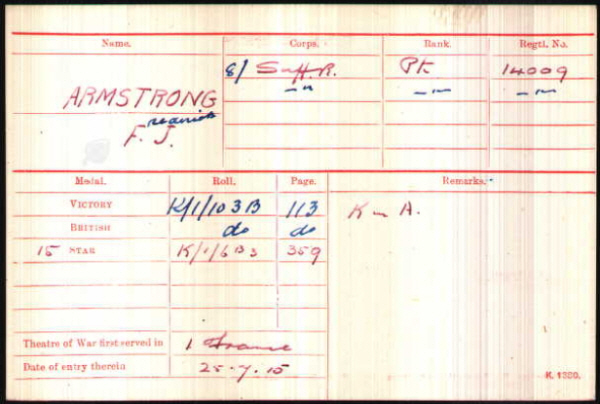 Name. Corps. Rank. Regtl. No.
8/ Suff. R. Pte. 14009
ARMSTRONG —"— —"— —"—
F. J.
Medal. Roll. Page. Remarks.
VICTORY K/1/103B 113 K in A.
BRITISH do do
15 STAR K/1/6B3 359
Theatre of War first served in 1 France
Date of entry therein 25-7-15
K. 1380.